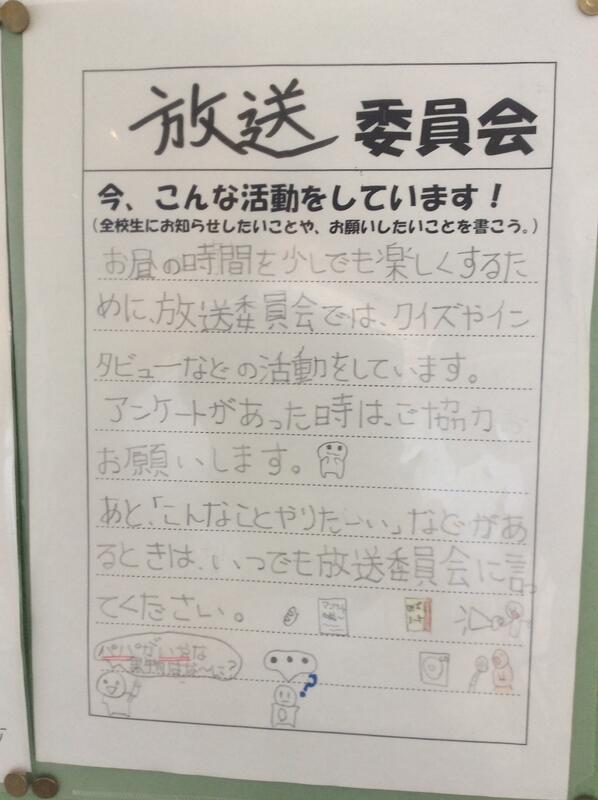 放送 委員会
今、こんな活動をしています！
（全校生にお知らせしたいことや、お願いしたいことを書こう。）
お昼の時間を少しでも楽しくするた
めに、放送委員会では、クイズやイン
タビューなどの活動をしています。
アンケートがあった時は、ご協力
お願いします。
あと、「こんなことやりたーい」などがあ
るときは、いつでも放送委員会に言っ
てください。
パパがいやな
果物はな～に？
•••
?